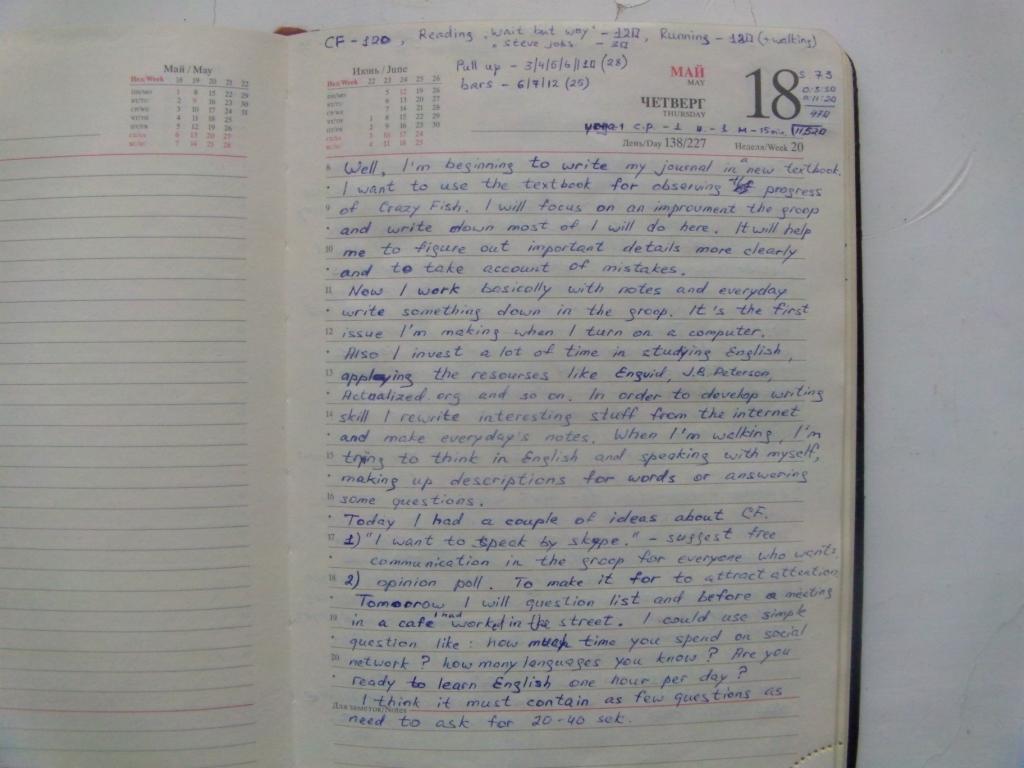 CF - 120, Reading "wait but way" - 120, Running - 120 (+walking)
"steve jobs - 30
Май / May
Нед/Week 18 19 20 21 22
пн/mo 1 8 15 22 29
вт/tu 2 9 16 23 30
ср/we 3 10 17 24 31
чт/th 4 11 18 25
пт/fr 5 12 19 26
сб/sa 6 13 20 27
вс/su 7 14 21 28
Июнь / June
Нед/Week 22 23 24 25 26
пн/mo 5 12 19 26
вт/tu 6 13 20 27
ср/we 7 14 21 28
чт/th 1 8 15 22 29
пт/fr 2 9 16 23 30
сб/sa 3 10 17 24
вс/su 4 11 18 25
Pull up - 3/4/5/6/10 (28)
bars - 6/7/12 (25)
МАЙ
MAY
ЧЕТВЕРГ
THURSDAY
18
S 7.5
c.p. - 1 M - 15 min.
День/Day 138/227 Неделя/Week 20
8 Well, I'm beginning to write my journal in a new textbook.
I want to use the textbook for observing the progress
9 of Crazy Fish. I will focus on an improvment the groop
and write down most of I will do here. It will help
10 me to figure out important details more clearly
and to take account of mistakes.
11 Now I work basically with notes and everyday
write something down in the groop. It's the first
12 issue I'm making when I turn on a computer.
Also I invest a lot of time in studying English,
13 applaying the resourses like Engvid, J.B. Peterson,
Actualized.org and so on. In order to develop writing
14 skill I rewrite interesting stuff from the internet
and make everyday's notes. When I'm walking, I'm
15 trying to think in English and speaking with myself,
making up descriptions for words or answering
16 some questions.
Today I had a couple of ideas about CF.
17 1) "I want to speak by skype." - suggest free
communication in the groop for everyone who wants.
18 2) opinion poll. To make it for to attract attention
Tomoorow I will question list and before a meeting
19 in a cafe I had worked in the street. I could use simple
question like: how much time you spend on social
20 network? how many languages you know? Are you
ready to learn English one hour per day?
I think it must contain as few questions as
Для заметок/Notes
need to ask for 20-40 sek.